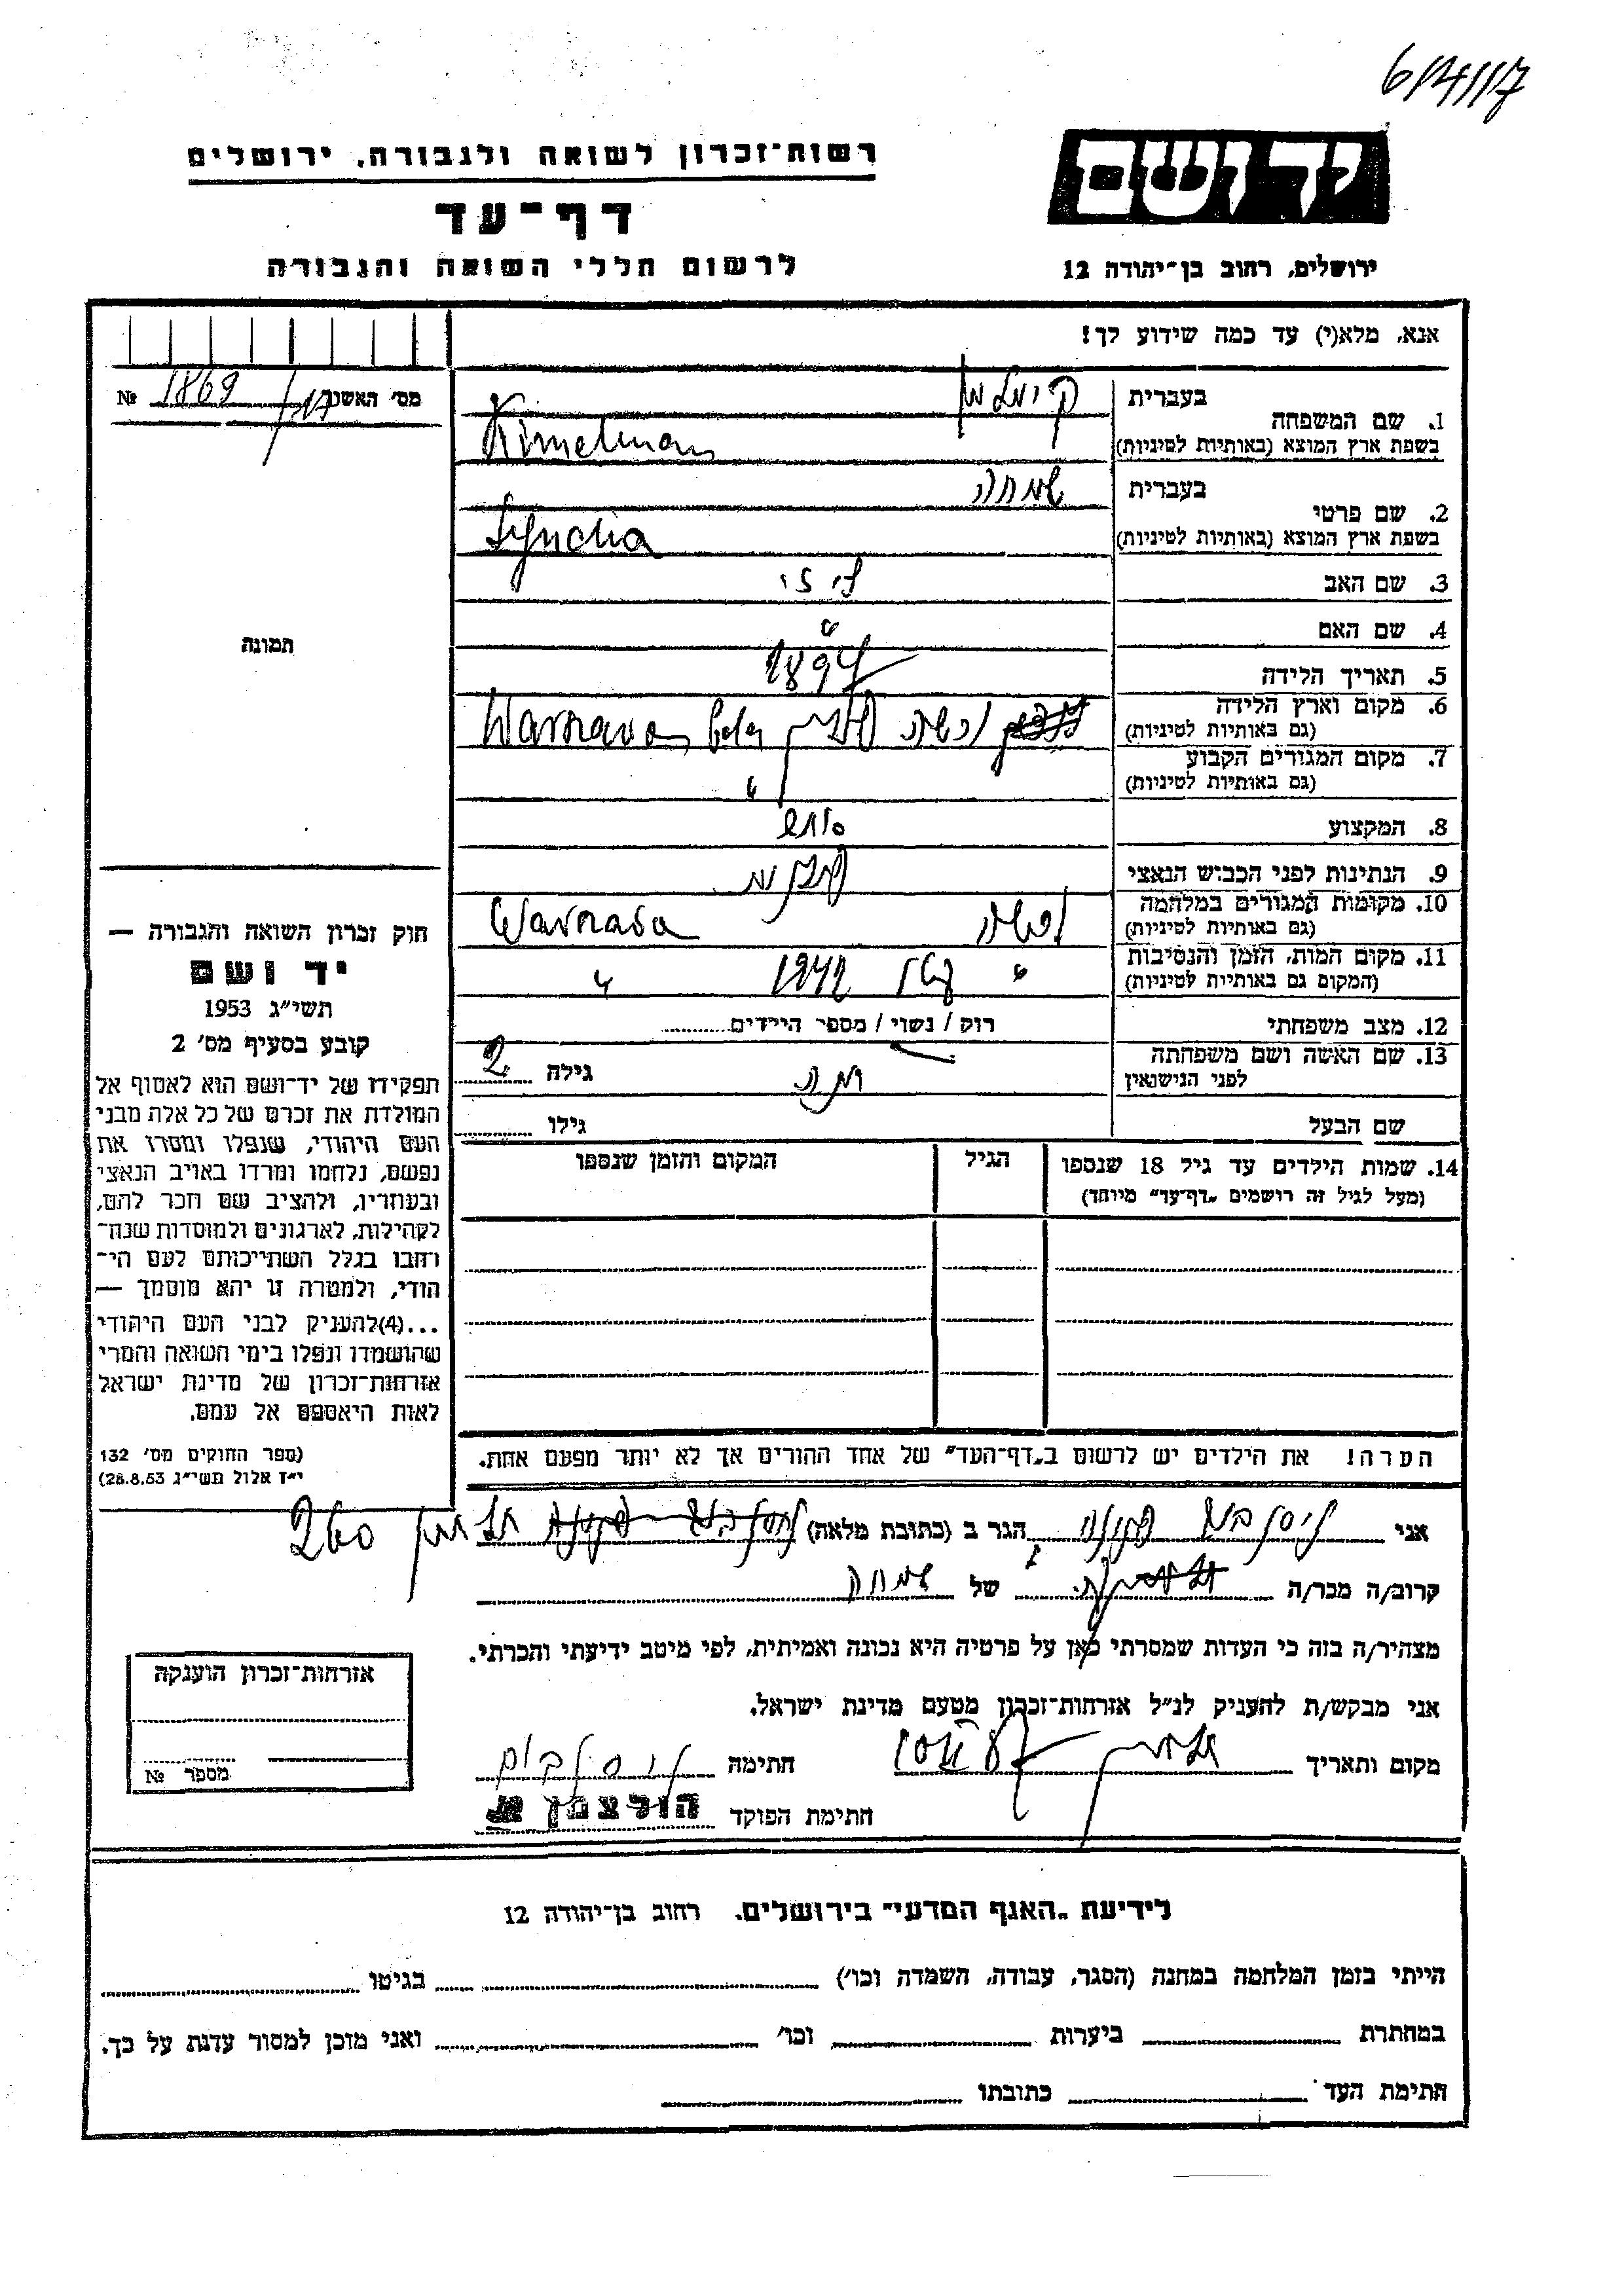 6/4/17
רשות־זכרון לשואה ולגבורה, ירושלים
יד ושם
דף־עד
לרשום חללי השואה והגבורה
ירושלים, רחוב בן־יהודה 12
אנא, מלא(י) עד כמה שידוע לך!
מס׳ האשנב № 1869
1. שם המשפחה
בעברית קימלמן
בשפת ארץ המוצא (באותיות לטיניות) Kimelman
2. שם פרטי
בעברית שמחה
בשפת ארץ המוצא (באותיות לטיניות)
3. שם האב
4. שם האם "
תמונה
5. תאריך הלידה 1894
6. מקום וארץ הלידה
(גם באותיות לטיניות) ורשה פולין Warszawa
7. מקום המגורים הקבוע
(גם באותיות לטיניות) "
8. המקצוע סוחר
9. הנתינות לפני הכבוש הנאצי
10. מקומות המגורים במלחמה
(גם באותיות לטיניות) ורשה Warszawa
11. מקום המות, הזמן והנסיבות
(המקום גם באותיות לטיניות) " 1942 "
12. מצב משפחתי רוק / נשוי / מספר הילדים
13. שם האשה ושם משפחתה
לפני הנישואין גילה
שם הבעל גילו
14. שמות הילדים עד גיל 18 שנספו
(מעל לגיל זה רושמים „דף־עד״ מיוחד)
הגיל
המקום והזמן שנספו
הערה! את הילדים יש לרשום ב„דף־העד״ של אחד ההורים אך לא יותר מפעם אחת.
חוק זכרון השואה והגבורה —
יד ושם
תשי״ג 1953
קובע בסעיף מס׳ 2
תפקידו של יד־ושם הוא לאסוף אל
המולדת את זכרם של כל אלה מבני
העם היהודי, שנפלו ומסרו את
נפשם, נלחמו ומרדו באויב הנאצי
ובעוזריו, ולהציב שם וזכר להם,
לקהילות, לארגונים ולמוסדות שנח־
רחבו בגלל השתייכותם לעם הי־
הודי, ולמטרה זו יהא מוסמך —
...(4)להעניק לבני העם היהודי
שהושמדו ונפלו בימי השואה והמרי
אזרחות־זכרון של מדינת ישראל
לאות היאספם אל עמם.
(ספר החוקים מס׳ 132
י״ז אלול תשי״ג 28.8.53)
אני הגר ב (כתובת מלאה) 260
קרוב/ה מכר/ה של שמחה
מצהיר/ה בזה כי העדות שמסרתי כאן על פרטיה היא נכונה ואמיתית, לפי מיטב ידיעתי והכרתי.
אני מבקש/ת להעניק לנ״ל אזרחות־זכרון מטעם מדינת ישראל.
מקום ותאריך חתימה
חתימת הפוקד הולצמן
אזרחות־זכרון הוענקה
מספר №
לידיעת „האגף המדעי״ בירושלים, רחוב בן־יהודה 12
הייתי בזמן המלחמה במחנה (הסגר, עבודה, השמדה וכו׳) בגיטו
במחתרת ביערות וכו׳ ואני מוכן למסור עדות על כך.
חתימת העד כתובתו